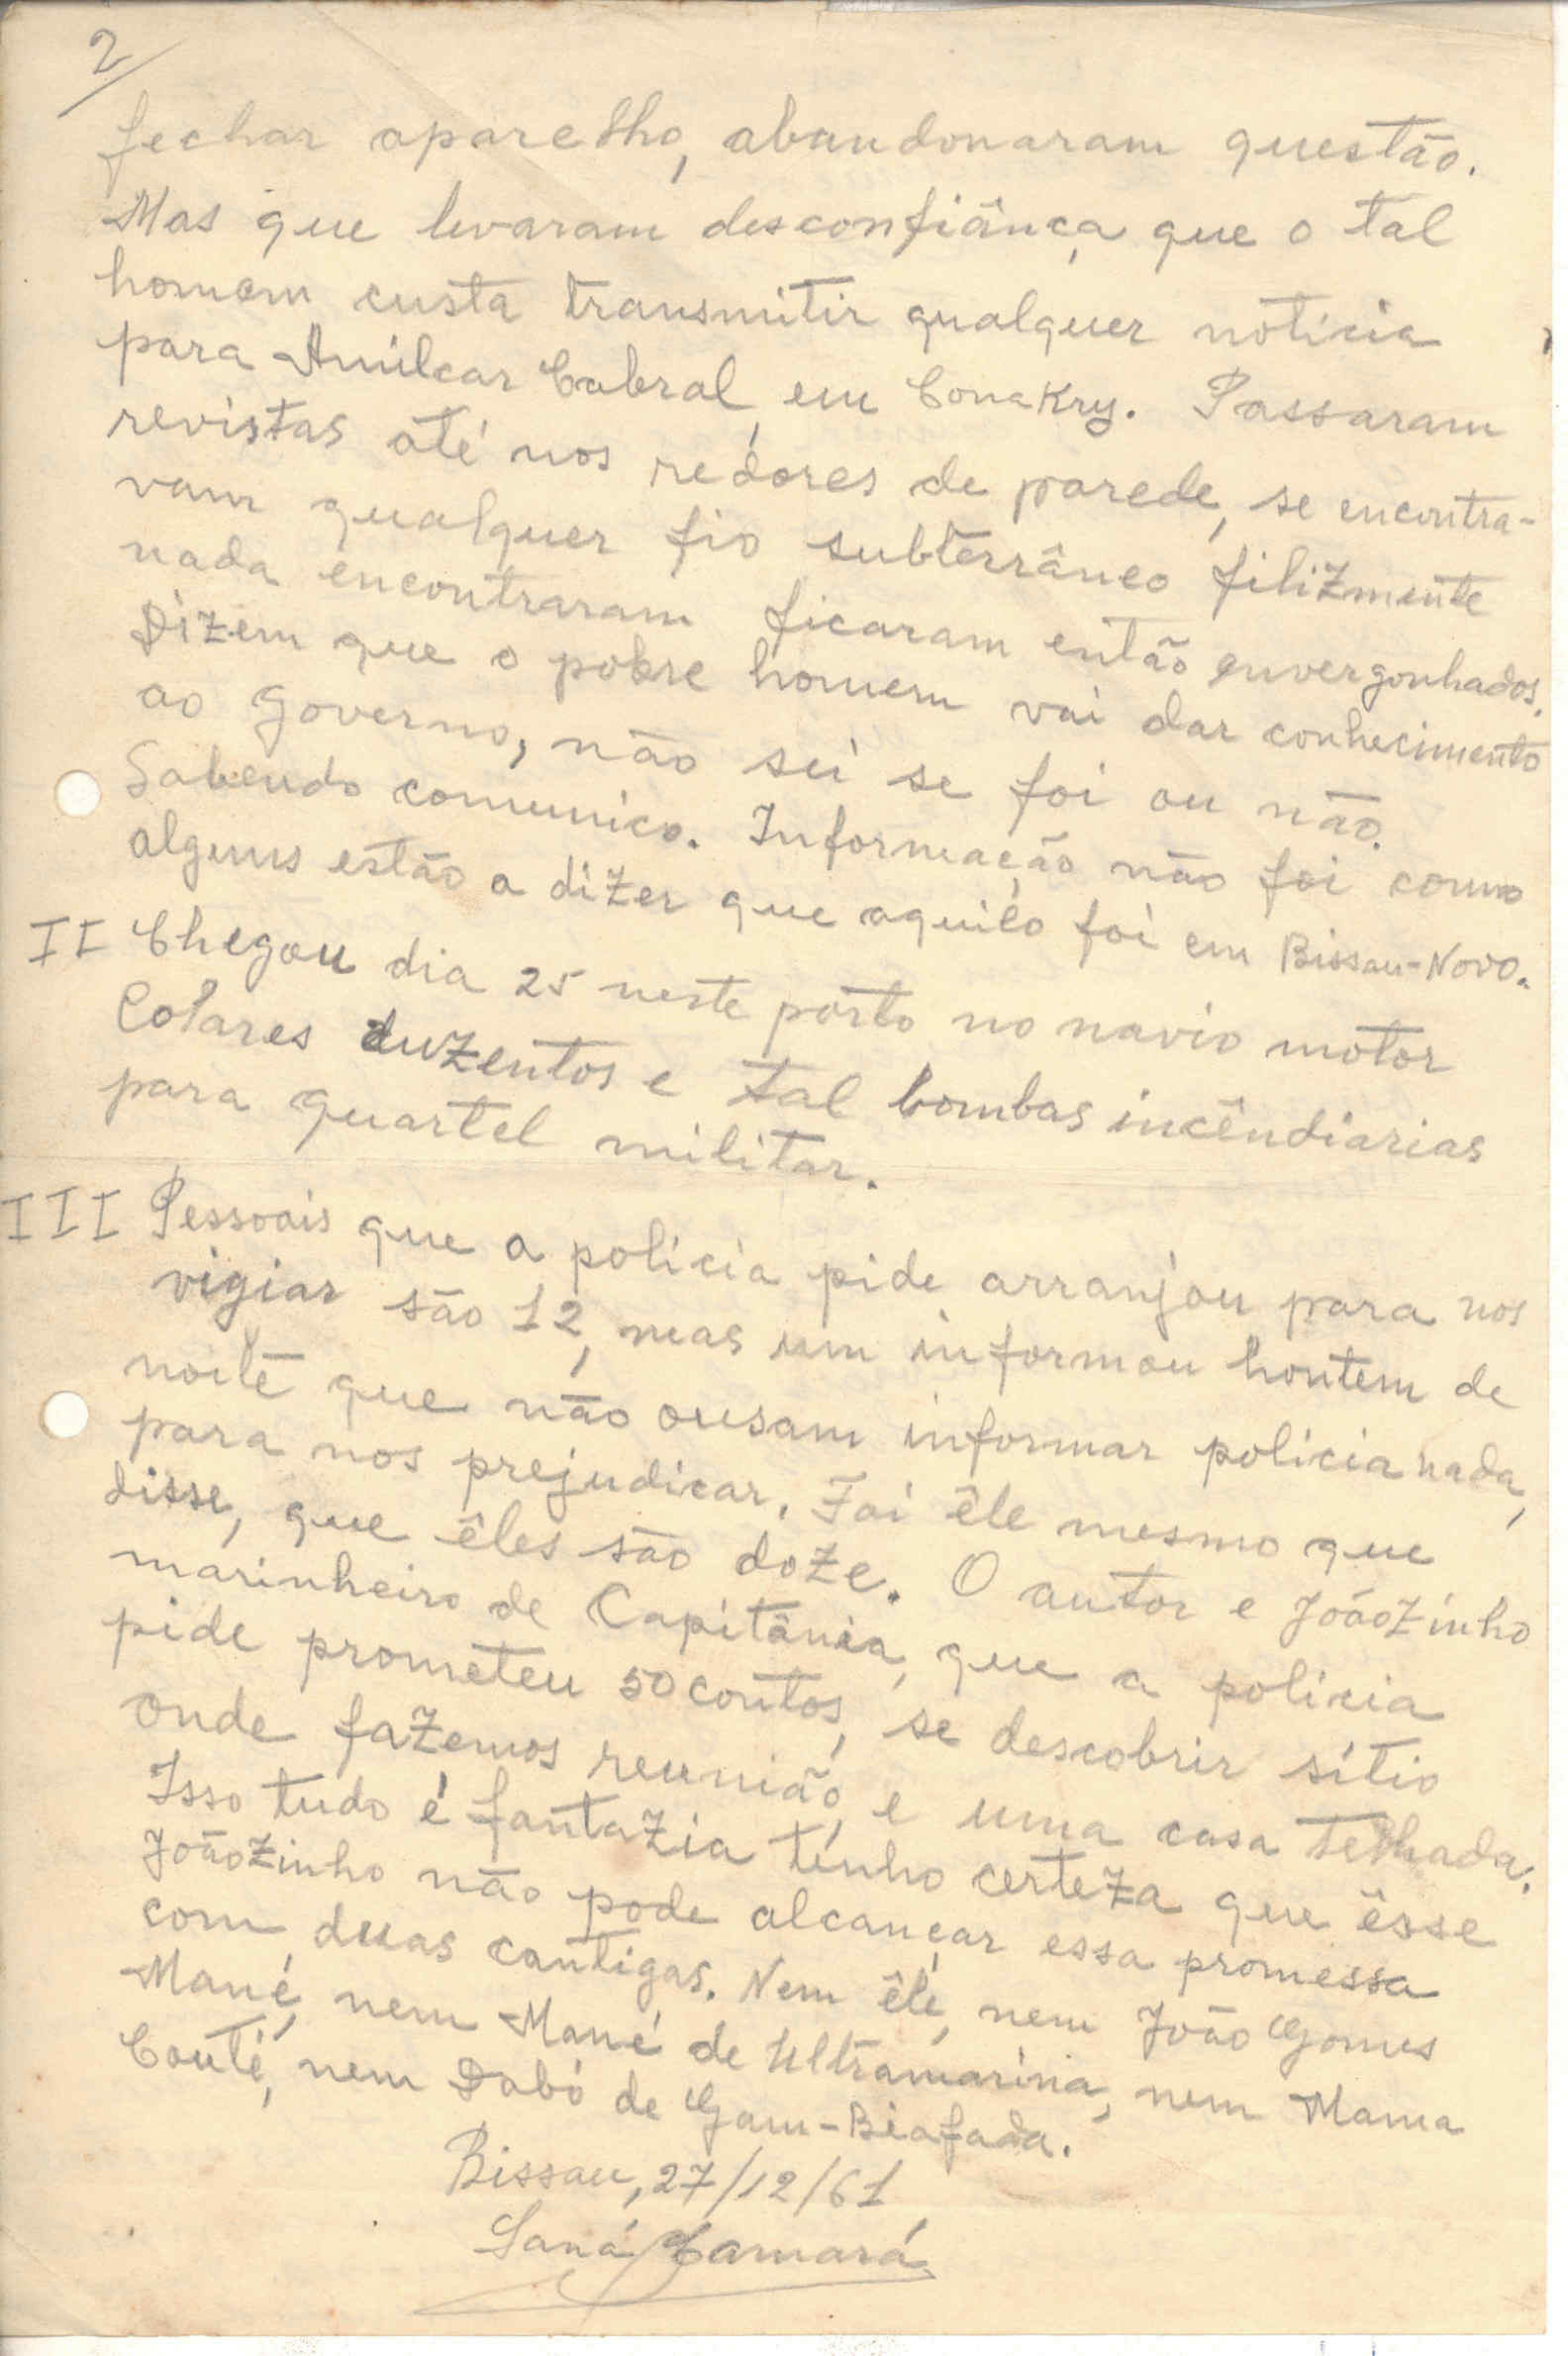 2/
fechar aparelho, abandonaram questão.
Mas que levaram desconfiânça que o tal
homem custa transmitir qualquer noticia
para Amilcar Cabral, em Conakry. Passaram
revistas até nos redores de parede, se encontra-
vam qualquer fio subterrâneo filizmente
nada encontraram ficaram então envergonhados.
Dizem que o pobre homem vai dar conhecimento
ao Governo, não sei se foi ou não.
Sabendo comunico. Informação não foi como
alguns estão a dizer que aquilo foi em Bissau-Novo.
II Chegou dia 25 neste pôrto no navio motor
Colares duzentos e tal bombas incêndiarias
para quartel militar.
III Pessoais que a policia pide arranjou para nos
vigiar são 12, mas um informou hontem de
noite que não ousam informar policia nada,
para nos prejudicar. Foi êle mesmo que
disse, que êles são doze. O autor e Joãozinho
marinheiro de Capitânia, que a policia
pide prometeu 50 contos, se descobrir sítio
onde fazemos reunião, e uma casa telhada.
Isso tudo é fantazia tenho certeza que êsse
Joãozinho não pode alcançar essa promessa
com duas cantigas. Nem êle, nem João Gomes
Mané, nem Mané de Ultramarina, nem Mama
Conté, nem Dabó de Gam-Biafada.
Bissau, 27/12/61
Saná Camará